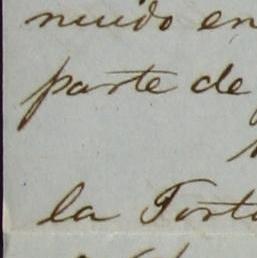 nuido en
parte de
la Fort